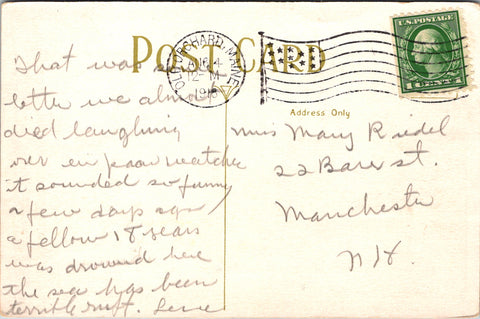 POST CARD
OLD ORCHARD, MAINE
12 - M
191
U.S. POSTAGE
1 CENT 1
Address Only
That was a
letter we almost
died laughing
over
it sounded so funny
a few days ago
a fellow 18 years
was drownd here
the sea has been
terrible ruff.
Miss Mary Riedel
22 Barr st.
Manchester
N H.